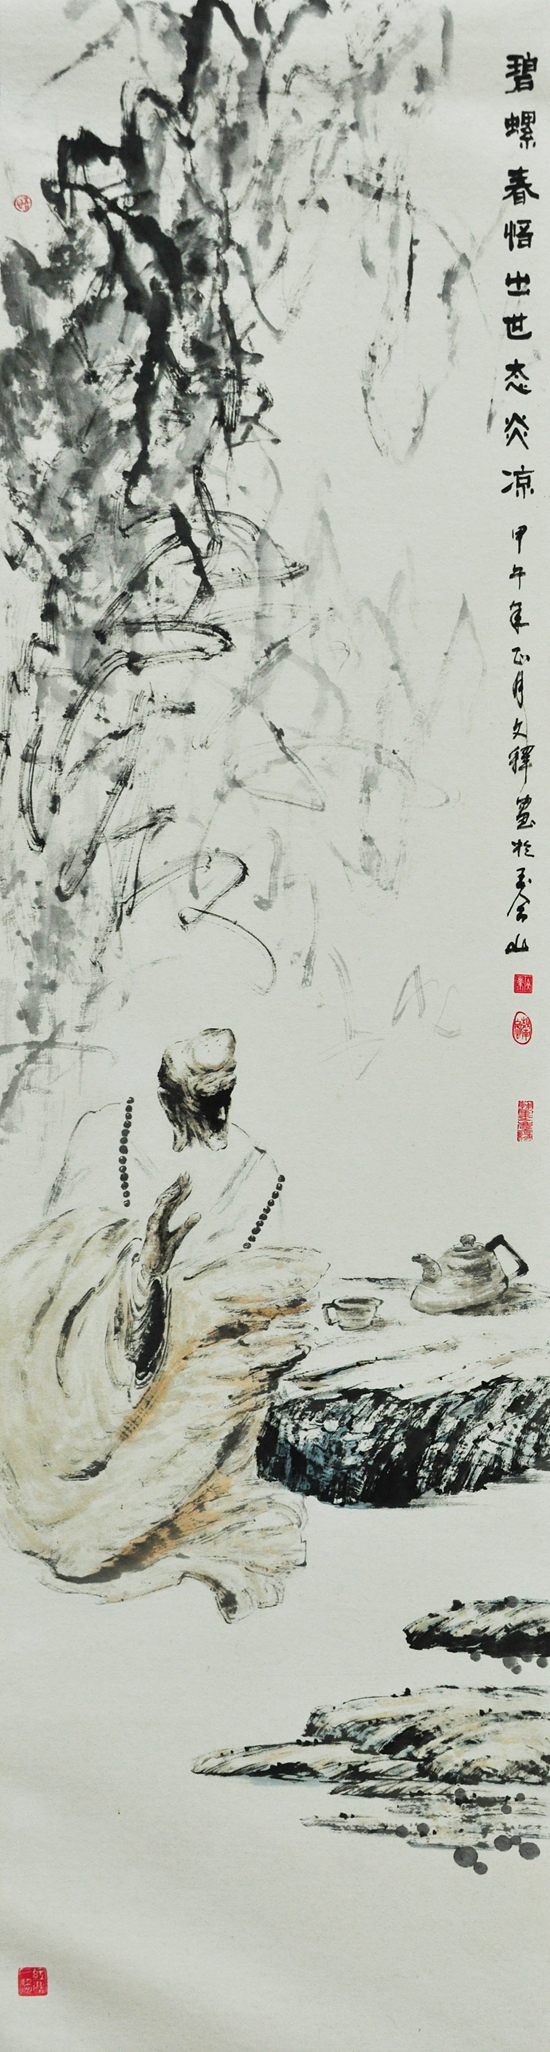 碧螺春悟出世态炎凉
甲午年正月文释画于万佘山